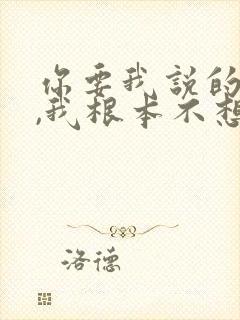 你要我説的
,我根本不想
洛德